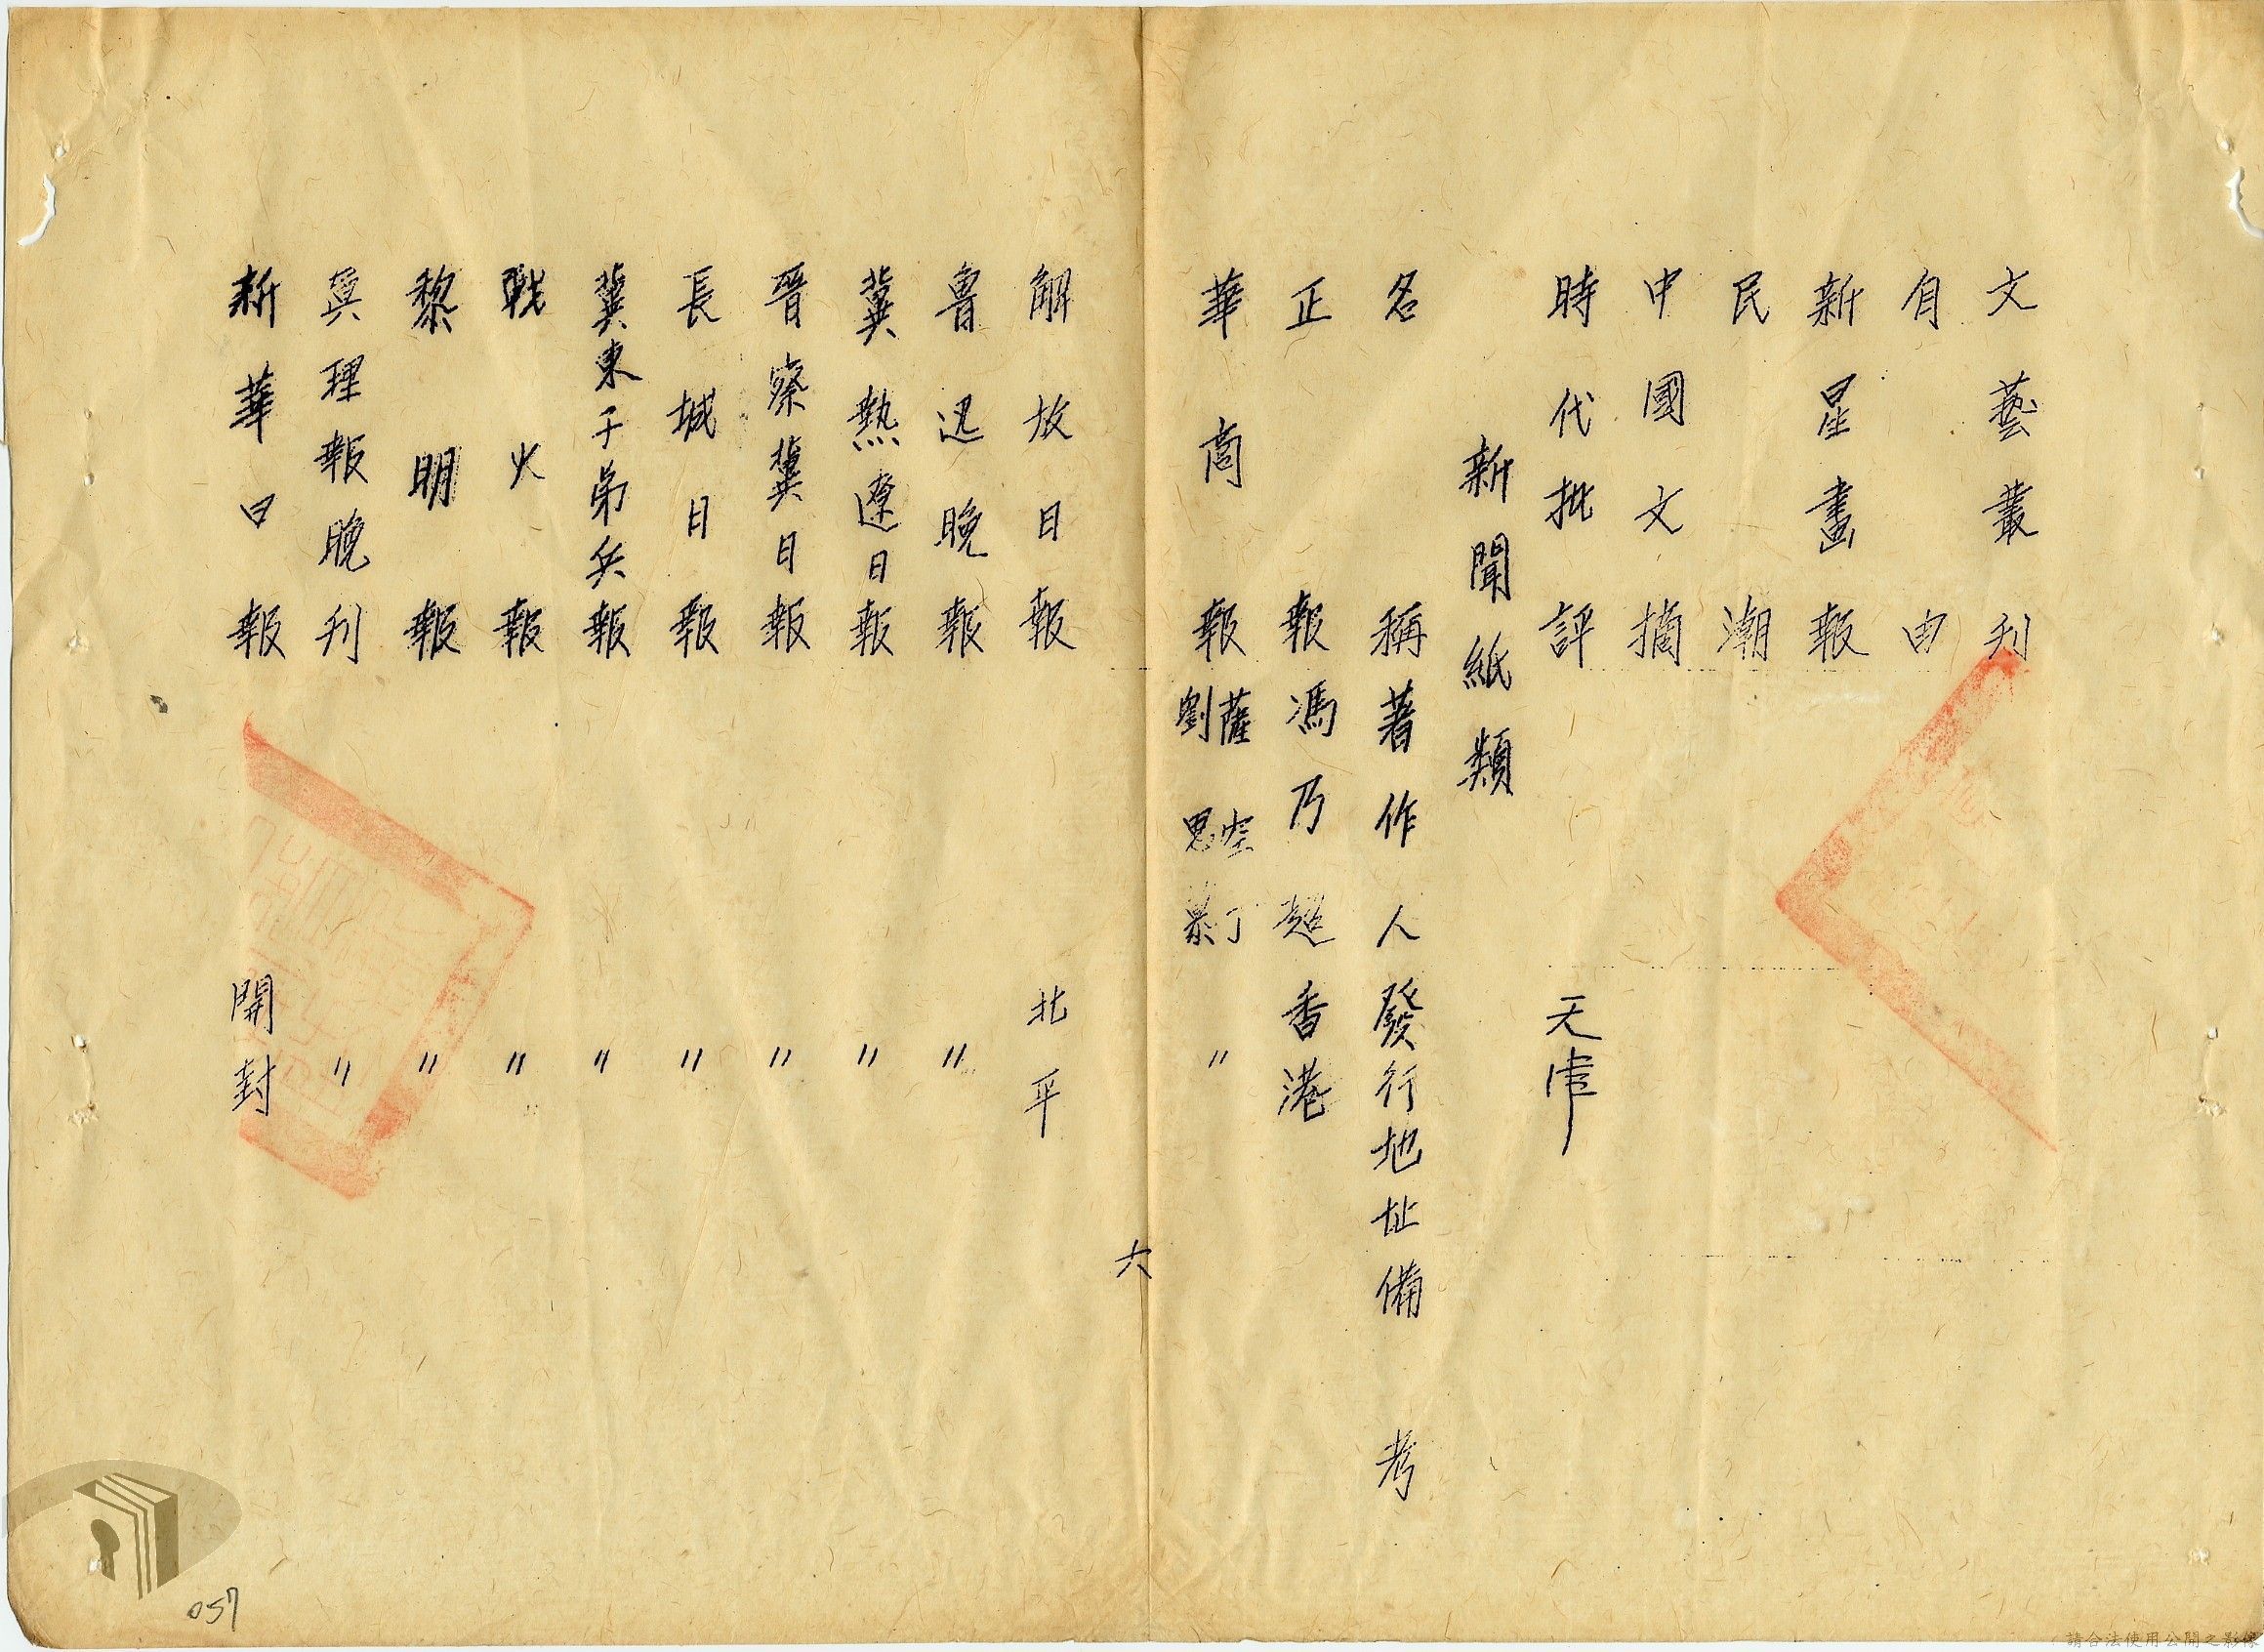 文藝叢刊
自由
新星畫報
民潮
中國文摘
時代批評 天虛
新聞紙類
名稱 著作人 發行地址 備考
正報 馮乃超 香港
華商報 薩空了 劉思慕 〃
六
解放日報 北平
魯迅晚報 〃
冀熱遼日報 〃
晉察冀日報 〃
長城日報 〃
冀東子弟兵報 〃
戰火報 〃
黎明報 〃
眞理報晚刊 〃
新華日報 開封
057
請合法使用公開之影像